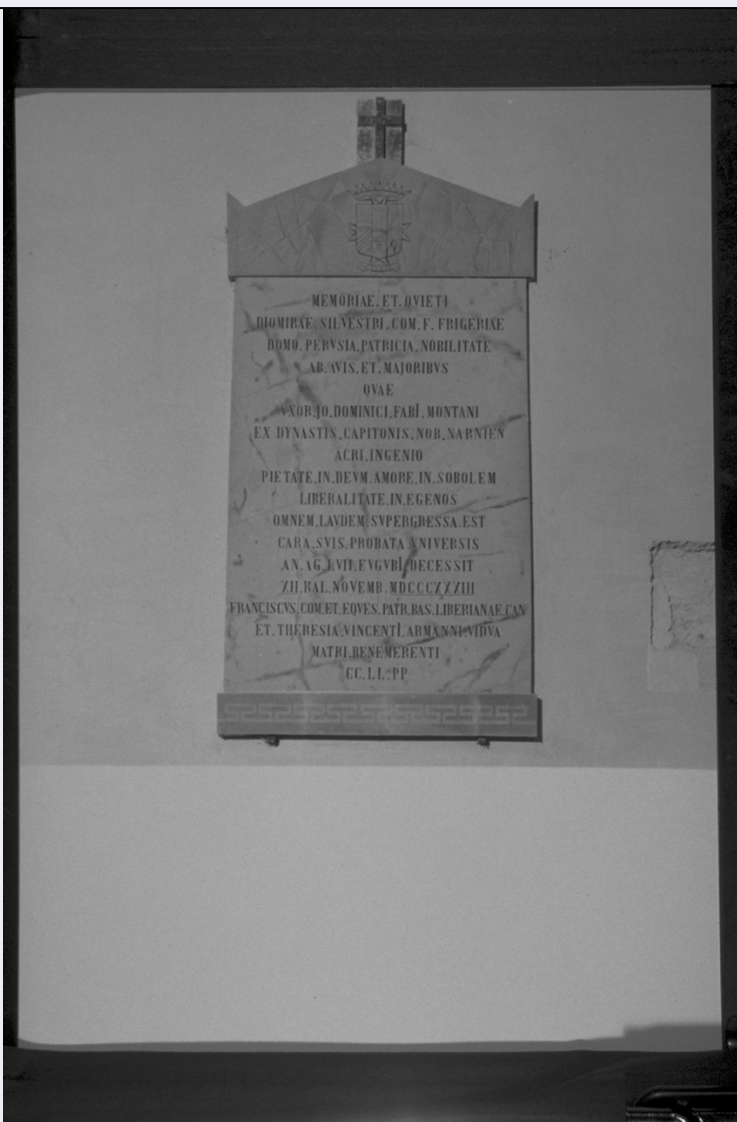 MEMORIAE. ET. QVIETI
DIOMIRAE. SILVESTRI. COM. F. FRIGERIAE
DOMO. PERVSIA. PATRICIA. NOBILITATE
AB. AVIS. ET. MAJORIBVS
QVAE
VXOR. JO. DOMINICI. FABÎ. MONTANI
EX DYNASTIS. CAPITONIS. NOB. NARNIEN
ACRI. INGENIO
PIETATE. IN. DEVM. AMORE. IN. SOBOLEM
LIBERALITATE. IN. EGENOS
OMNEM. LAVDEM SVPERGRESSA. EST
CARA. SVIS. PROBATA VNIVERSIS
AN. AG. LVII. EVGVBÎ. DECESSIT
XII. KAL. NOVEMB. MDCCCXXXIII
FRANCISCVS. COM. ET. EQVES. PATR. BAS. LIBERIANAE. CAN
ET. THERESIA. VINCENTÎ. ARMANNI. VIDVA
MATRI. BENEMERENTI
CC. LL. PP